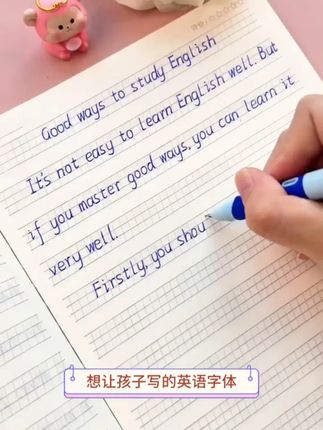 Good ways to study English
It's not easy to learn English well. But
if you master good ways, you can learn it
very well.
Firstly, you shou
想让孩子写的英语字体